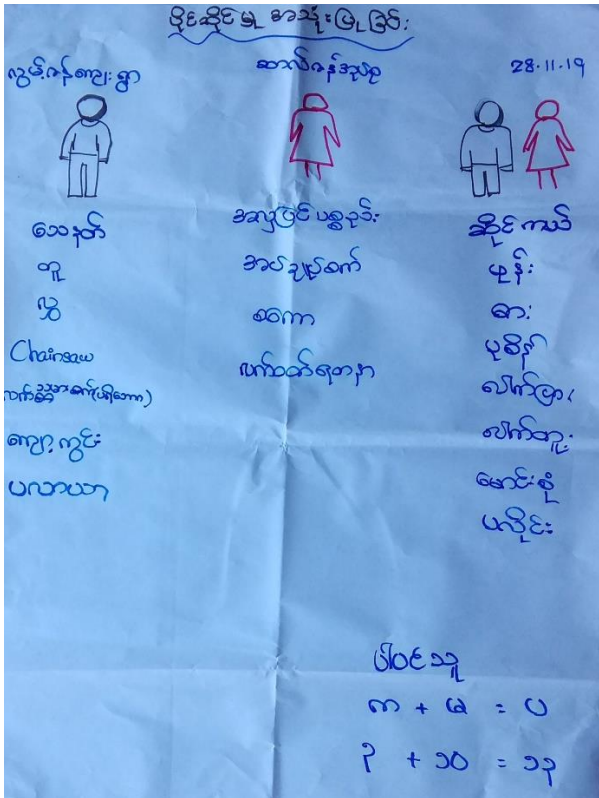 ပိုင်ဆိုင်မှု အသုံးပြုခြင်း
လွမ်ဇန်ကျေးရွာ
ဆာလ်ဇန်အုပ်စု
28.11.19
သေနတ်
တူ
လွှ
Chainsaw
လက်သမားစက်(ပရိဘောဂ)
ကျော့ကွင်း
ပလာယာ
အလှပြင်ပစ္စည်း
အပ်ချုပ်စက်
ဆကာ
လက်ဝတ်ရတနာ
ဆိုင်ကယ်
ဖုန်း
ဓား
ပုစိန်
ပေါက်ပြား
ပေါက်တူး
မောင်းဆုံ
ပလိုင်း
ပါဝင်သူ
ကျား + မ = ပ
၃ + ၁၀ = ၁၃